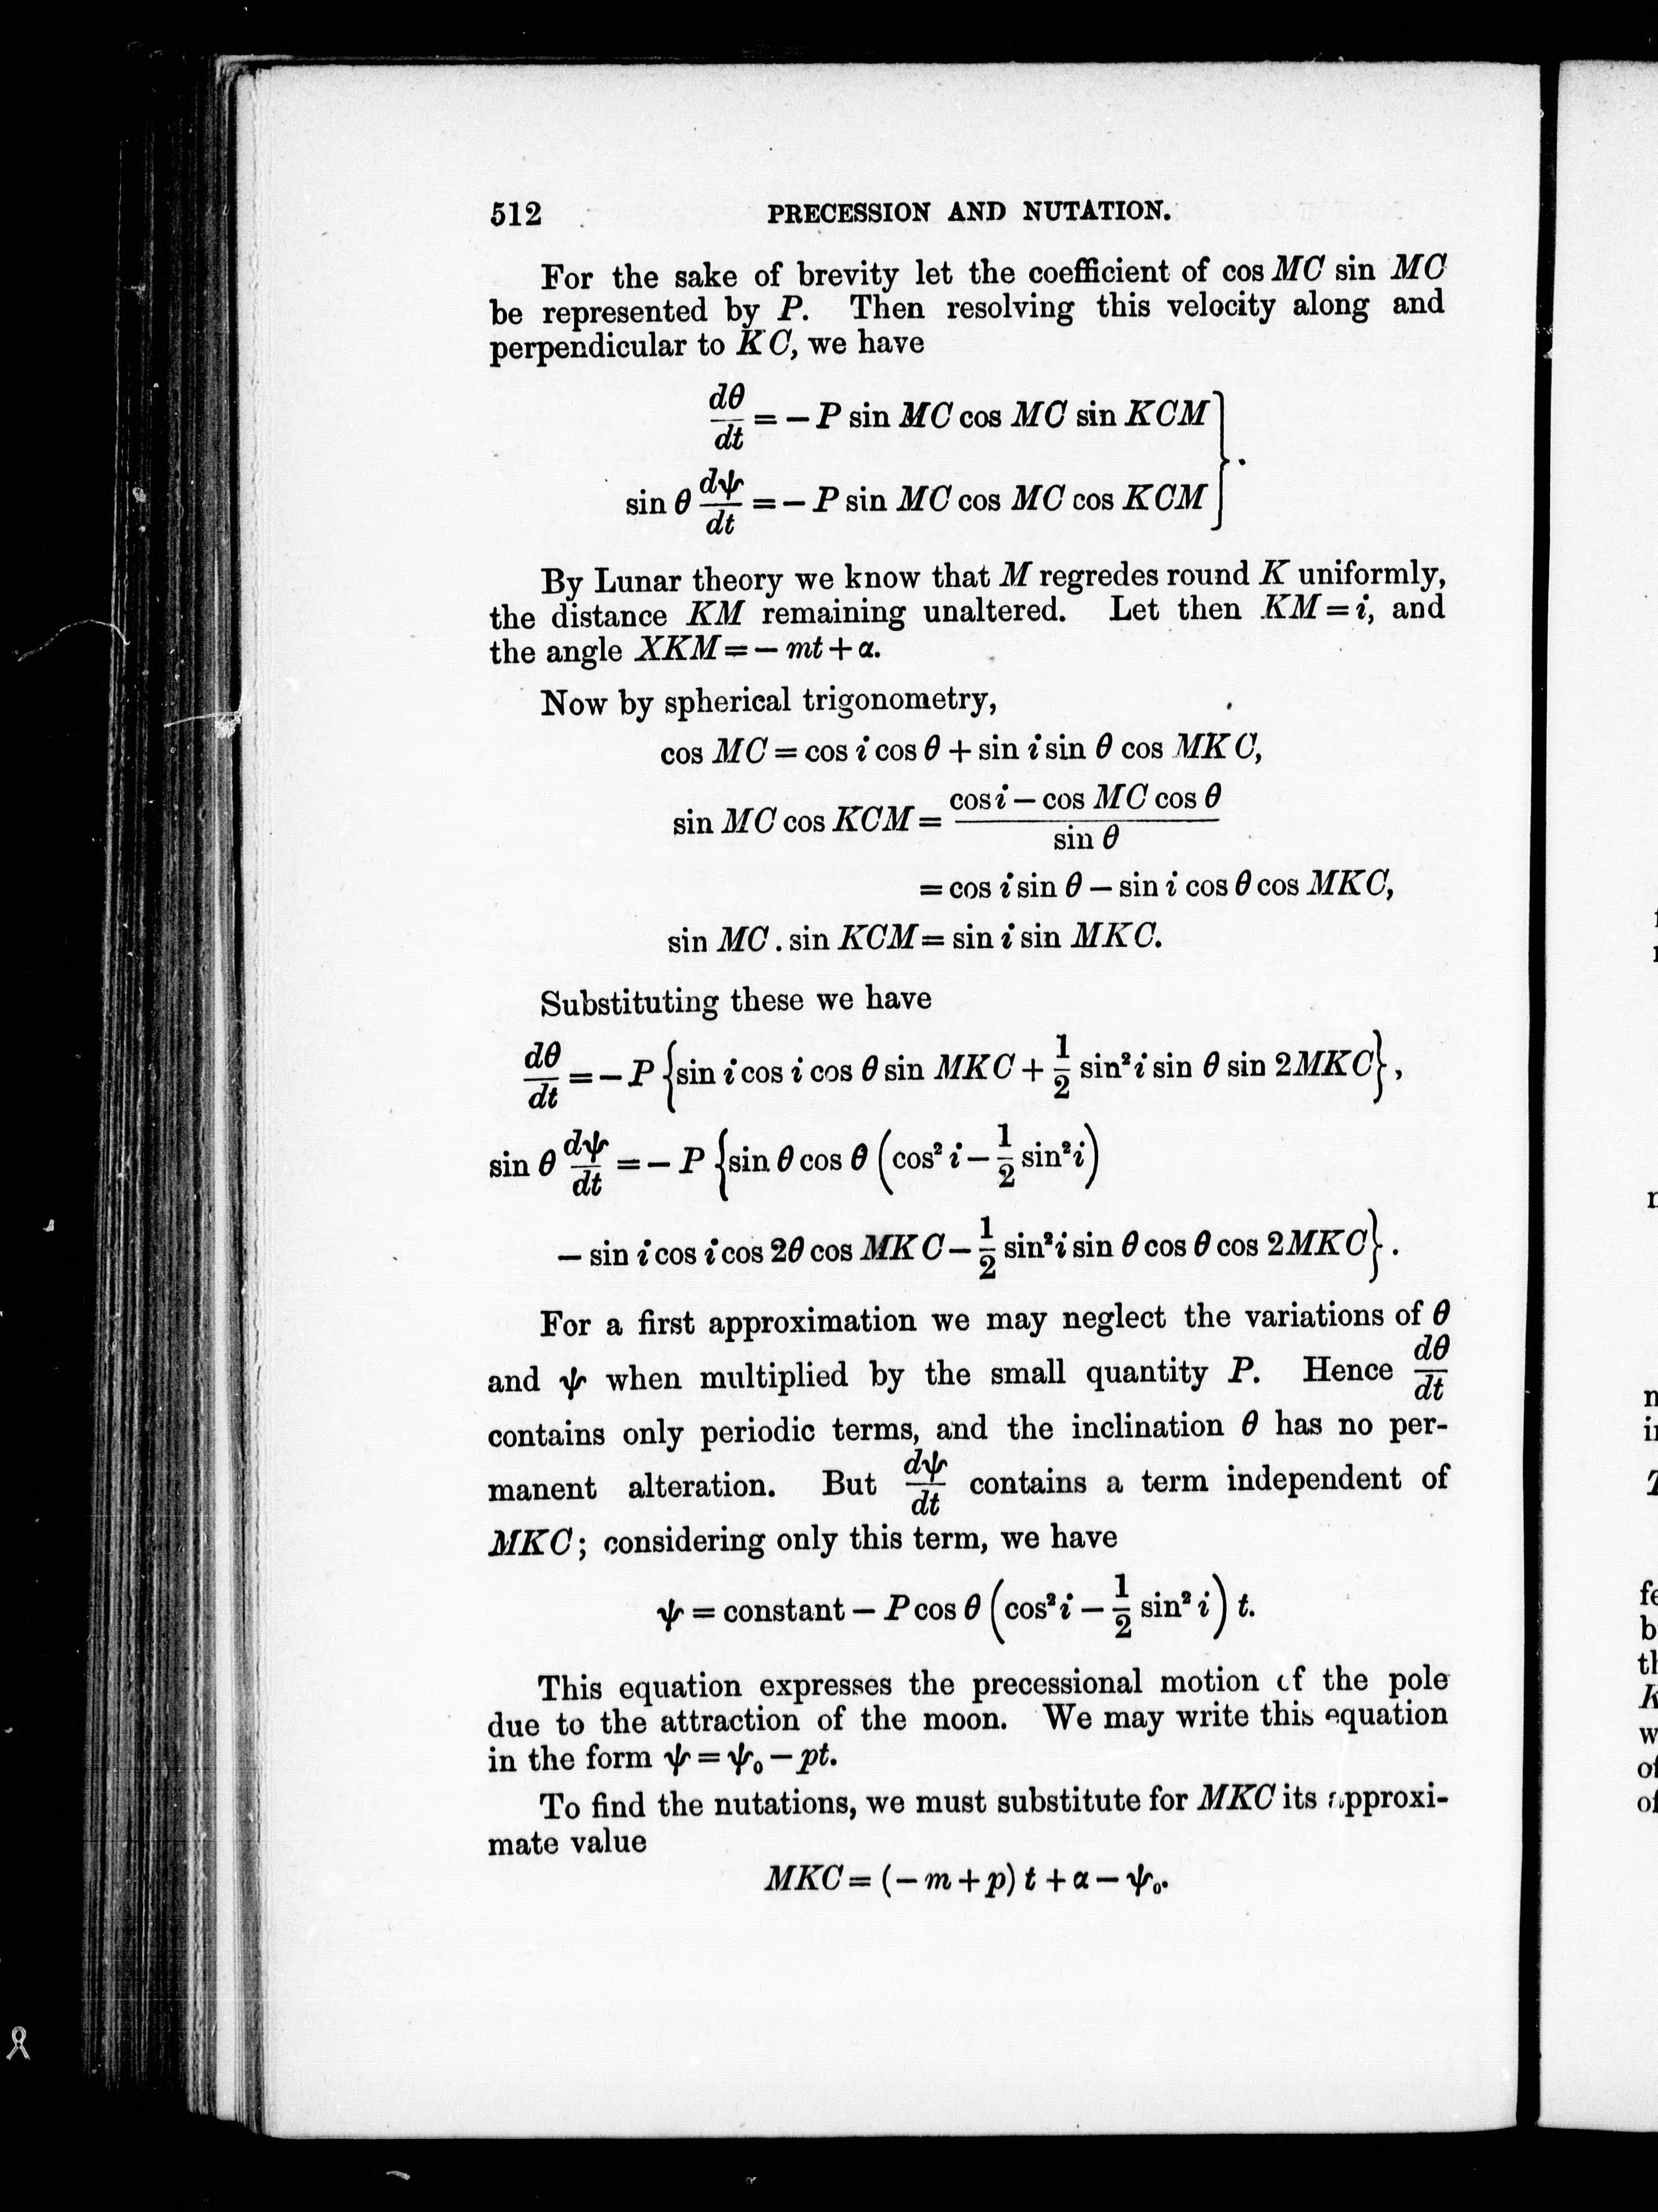 512 PRECESSION AND NUTATION.
For the sake of brevity let the coefficient of cos MC sin MC
be represented by P. Then resolving this velocity along and
perpendicular to KC, we have
dθ/dt = − P sin MC cos MC sin KCM
sin θ dψ/dt = − P sin MC cos MC cos KCM } .
By Lunar theory we know that M regredes round K uniformly,
the distance KM remaining unaltered. Let then KM = i, and
the angle XKM = − mt + α.
Now by spherical trigonometry,
cos MC = cos i cos θ + sin i sin θ cos MKC,
sin MC cos KCM = (cos i − cos MC cos θ)/sin θ
= cos i sin θ − sin i cos θ cos MKC,
sin MC . sin KCM = sin i sin MKC.
Substituting these we have
dθ/dt = − P {sin i cos i cos θ sin MKC + 1/2 sin² i sin θ sin 2MKC} ,
sin θ dψ/dt = − P {sin θ cos θ (cos² i − 1/2 sin² i)
− sin i cos i cos 2θ cos MKC − 1/2 sin² i sin θ cos θ cos 2MKC} .
For a first approximation we may neglect the variations of θ
and ψ when multiplied by the small quantity P. Hence dθ/dt
contains only periodic terms, and the inclination θ has no per-
manent alteration. But dψ/dt contains a term independent of
MKC; considering only this term, we have
ψ = constant − P cos θ (cos² i − 1/2 sin² i) t.
This equation expresses the precessional motion of the pole
due to the attraction of the moon. We may write this equation
in the form ψ = ψ₀ − pt.
To find the nutations, we must substitute for MKC its approxi-
mate value
MKC = (− m + p) t + α − ψ₀.